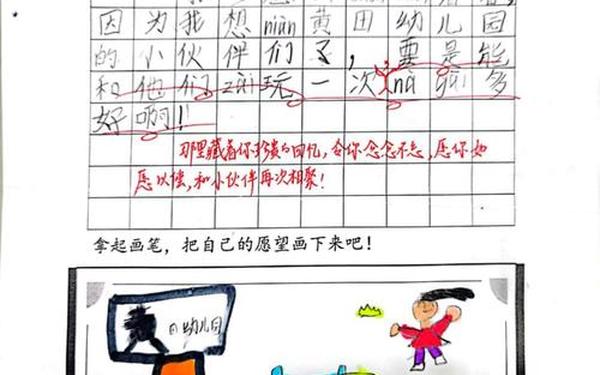 因为我想niàn黄田幼儿园
的小伙伴们了，要是能
和他们zài玩一次，nà gāi多
好啊！
那里藏着你珍贵的回忆，令你念念不忘，愿你如
愿以偿，和小伙伴再次相聚！
拿起画笔，把自己的愿望画下来吧！
田幼儿园